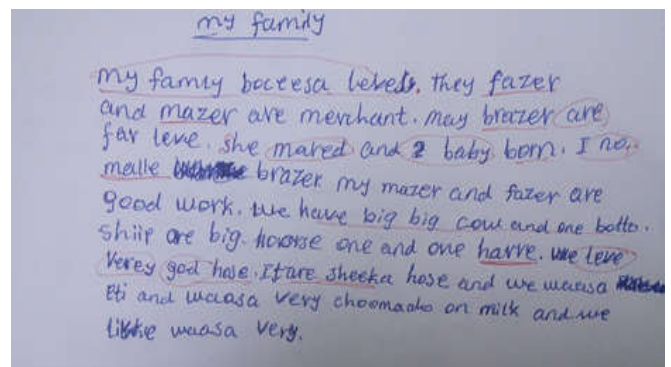 my family
my famiy boceesa leveds. they fazer
and mazer are merchant. may brazer are
far leve. she mared and 2 baby born. I no
malle brazer my mazer and fazer are
good work. we have big big cow and one botto.
shiip are big. hoorse one and one harre. we leve
verey god hose. It are sheeka hose and we waasa
eti and waasa very choomaako on milk and we
like waasa very.